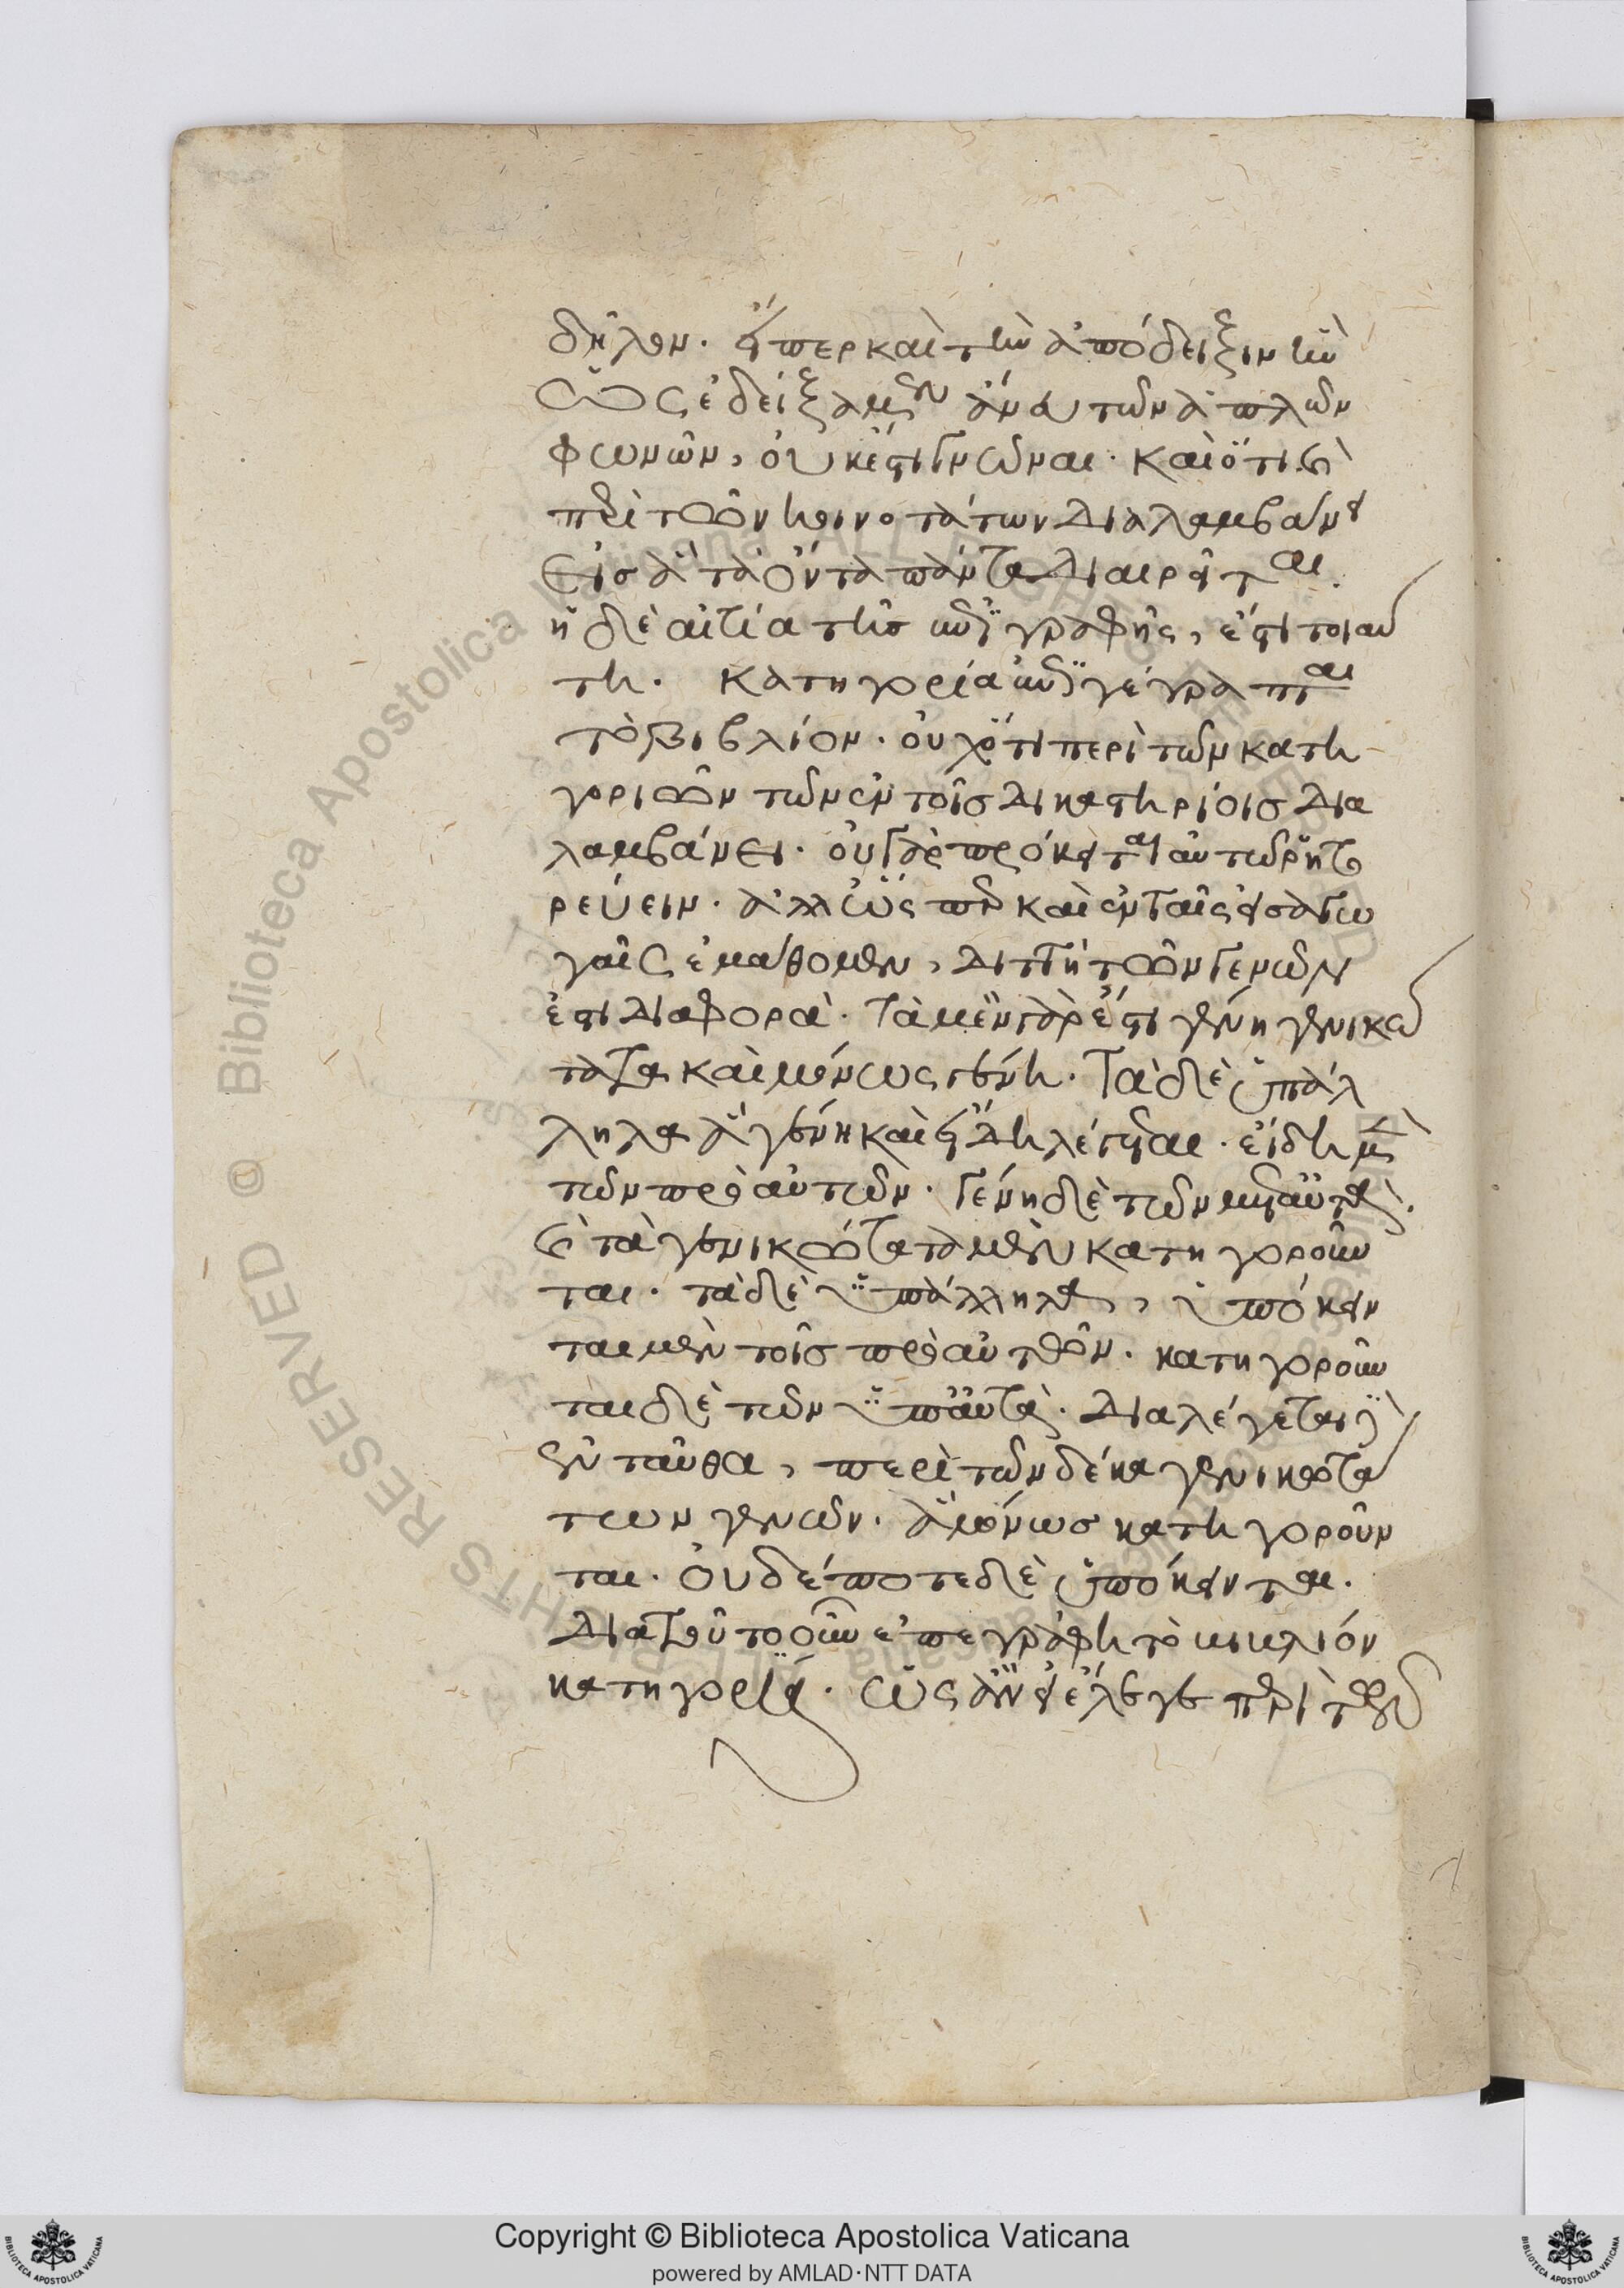 δῆλον. εἴπερ καὶ τὴν ἀπόδειξιν ἣν
ὡς ἐδείξαμεν ἄνευ τῶν ἁπλῶν
φωνῶν, οὐκ ἔστι γνῶναι. καὶ ὅτι καὶ
περὶ τῶν κοινοτάτων διαλαμβάνει
εἰς ἃ τὰ ὄντα πάντα διαιρεῖται.
ἡ δὲ αἰτία τῆς ἐπιγραφῆς, ἔστι τοιαύ
τη. Κατηγορία ἐπιγέγραπται
τὸ βιβλίον. οὐχ ὅτι περὶ τῶν κατη
γοριῶν τῶν ἐν τοῖς δικαστηρίοις δια
λαμβάνει. οὐ γὰρ πρόκειται αὐτῶ ῥητο
ρεύειν. ἀλλ' ὥσπερ καὶ ἐν ταῖς εἰσαγω
γαῖς ἐμάθομεν, διττὴ τῶν γενῶν
ἐστι διαφορά. τὰ μὲν γάρ ἐστι γένη γενικώ
τατα καὶ μόνως γένη. τὰ δὲ ὑπάλ
ληλα ἃ γένη καὶ εἴδη λέγεται. εἴδη μὲν
τῶν πρὸ αὐτῶν. γένη δὲ τῶν μετ' αὐτά.
καὶ τὰ γενικώτατα μὲν κατηγοροῦν
ται. τὰ δὲ ὑπάλληλα, ὑπόκειν
ται μὲν τοῖς πρὸ αὐτῶν. κατηγοροῦν
ται δὲ τῶν ὑπ' αὐτά. διαλέγεται
ἐνταῦθα, περὶ τῶν δέκα γενικωτά
των γενῶν. ἃ μόνως κατηγοροῦν
ται. οὐδέποτε δὲ ὑπόκεινται.
διὰ τοῦτο οὖν ἐπεγράφη τὸ βιβλίον
κατηγορίαι. ὡς ἂν εἰ ἔλεγε περὶ τῶν
Copyright © Biblioteca Apostolica Vaticana
powered by AMLAD·NTT DATA